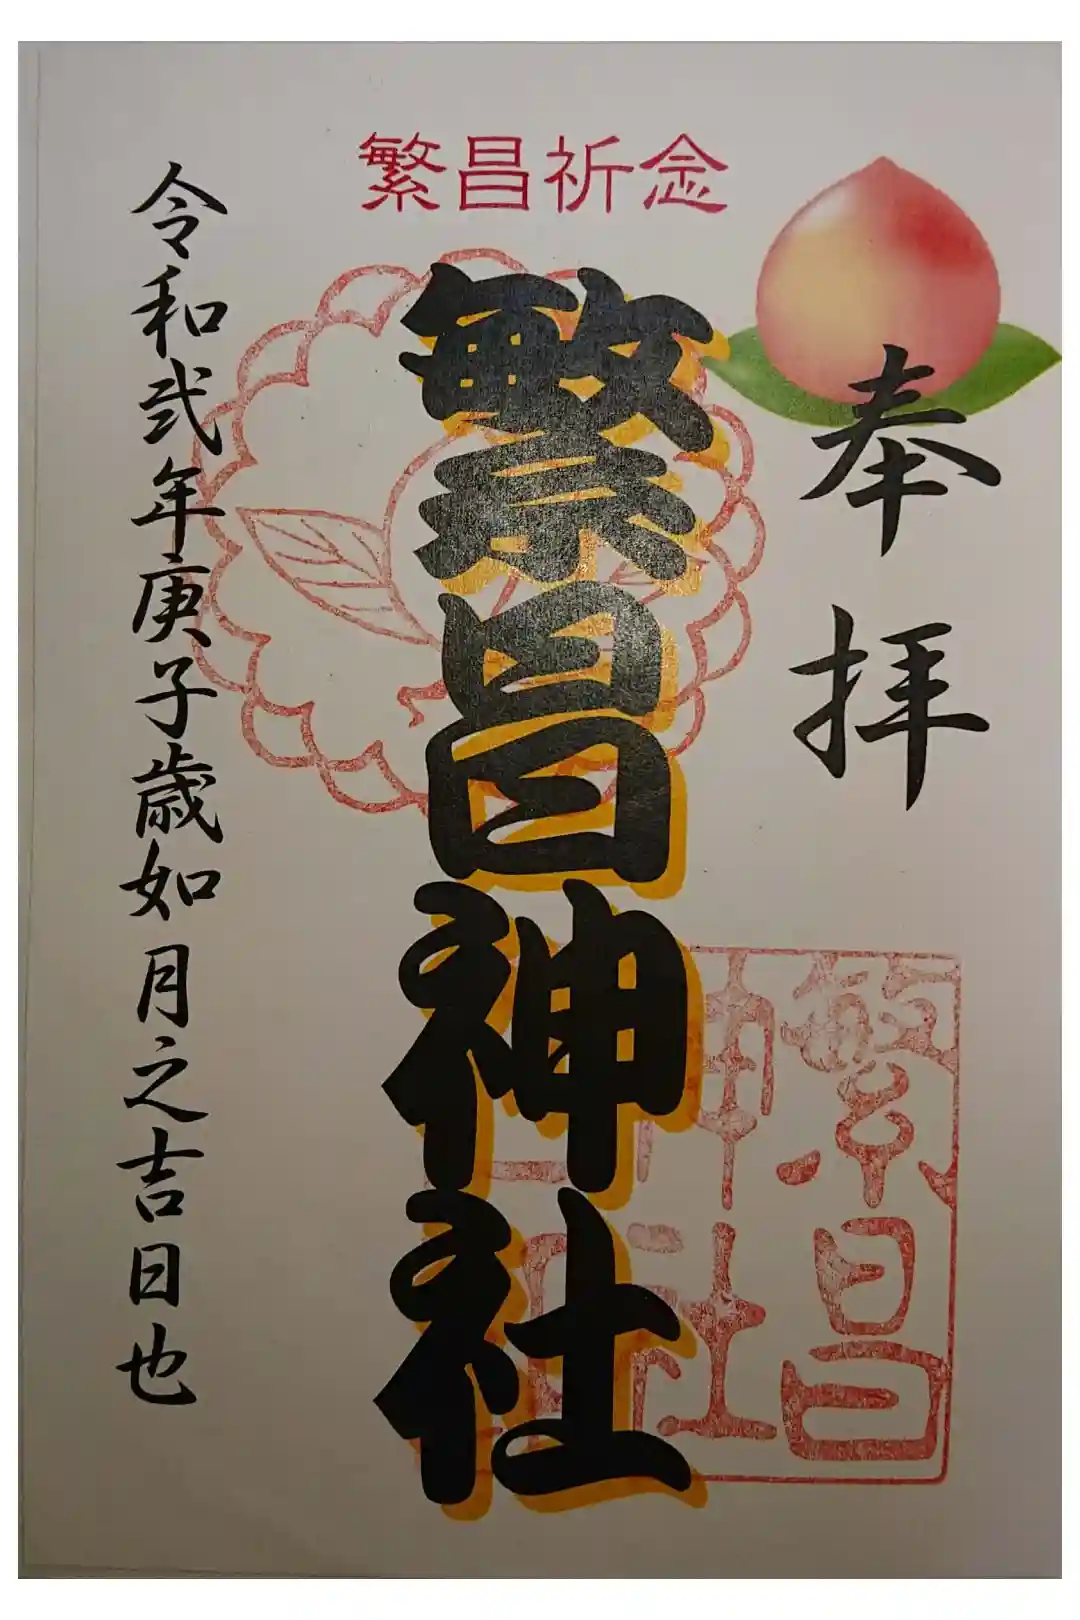 繁昌祈念
奉拝
繁昌神社
令和弐年庚子歳如月之吉日也
繁昌
神社